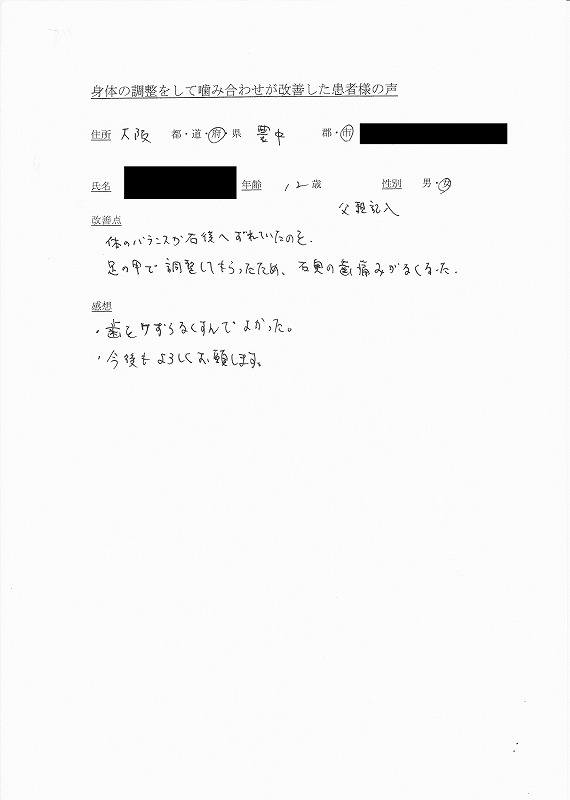 身体の調整をして噛み合わせが改善した患者様の声
住所 大阪 都・道・府・県 豊中 郡・市
氏名 年齢 12歳 性別 男・女
父親記入
改善点
体のバランスが右後へずれていたのを、
足の甲で調整してもらったため、右奥の歯痛みがなくなった.
感想
・歯をけずらなくすんでよかった。
・今後もよろしくお願します。